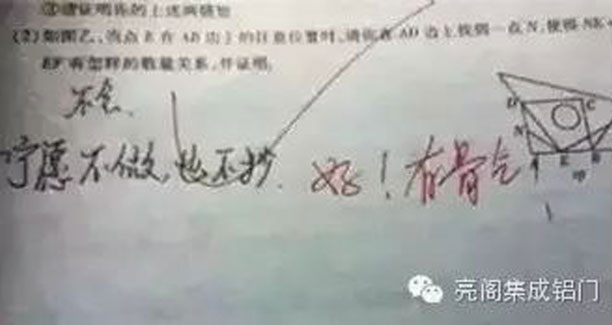 ②请证明你的上述两猜想
(2)如图乙,当点E在AB边上的任意位置时,请你在AD边上找到一点N,使得NE
EF有怎样的数量关系,并证明.
不会、
宁愿不做,也不抄. 好!有骨气
D C
N
A E B
亮阁集成铝门